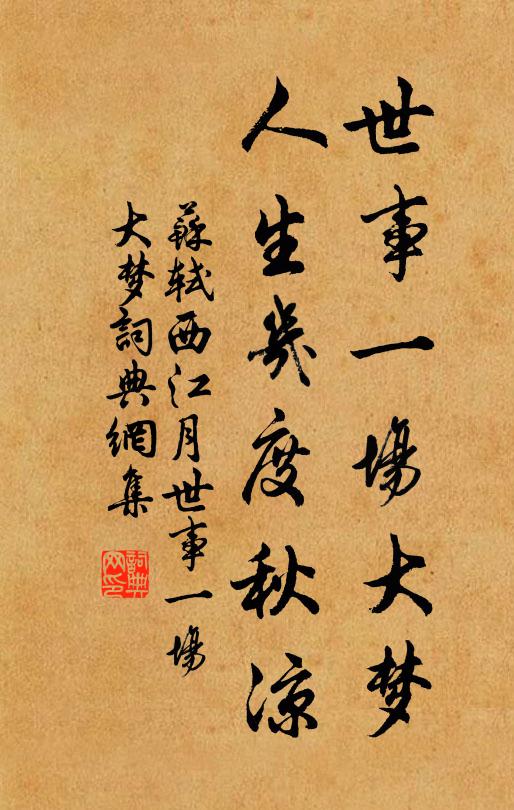 世事一場大梦
人生幾度秋凉
蘇軾西江月世事一場
大梦詞典網集
詞典网印